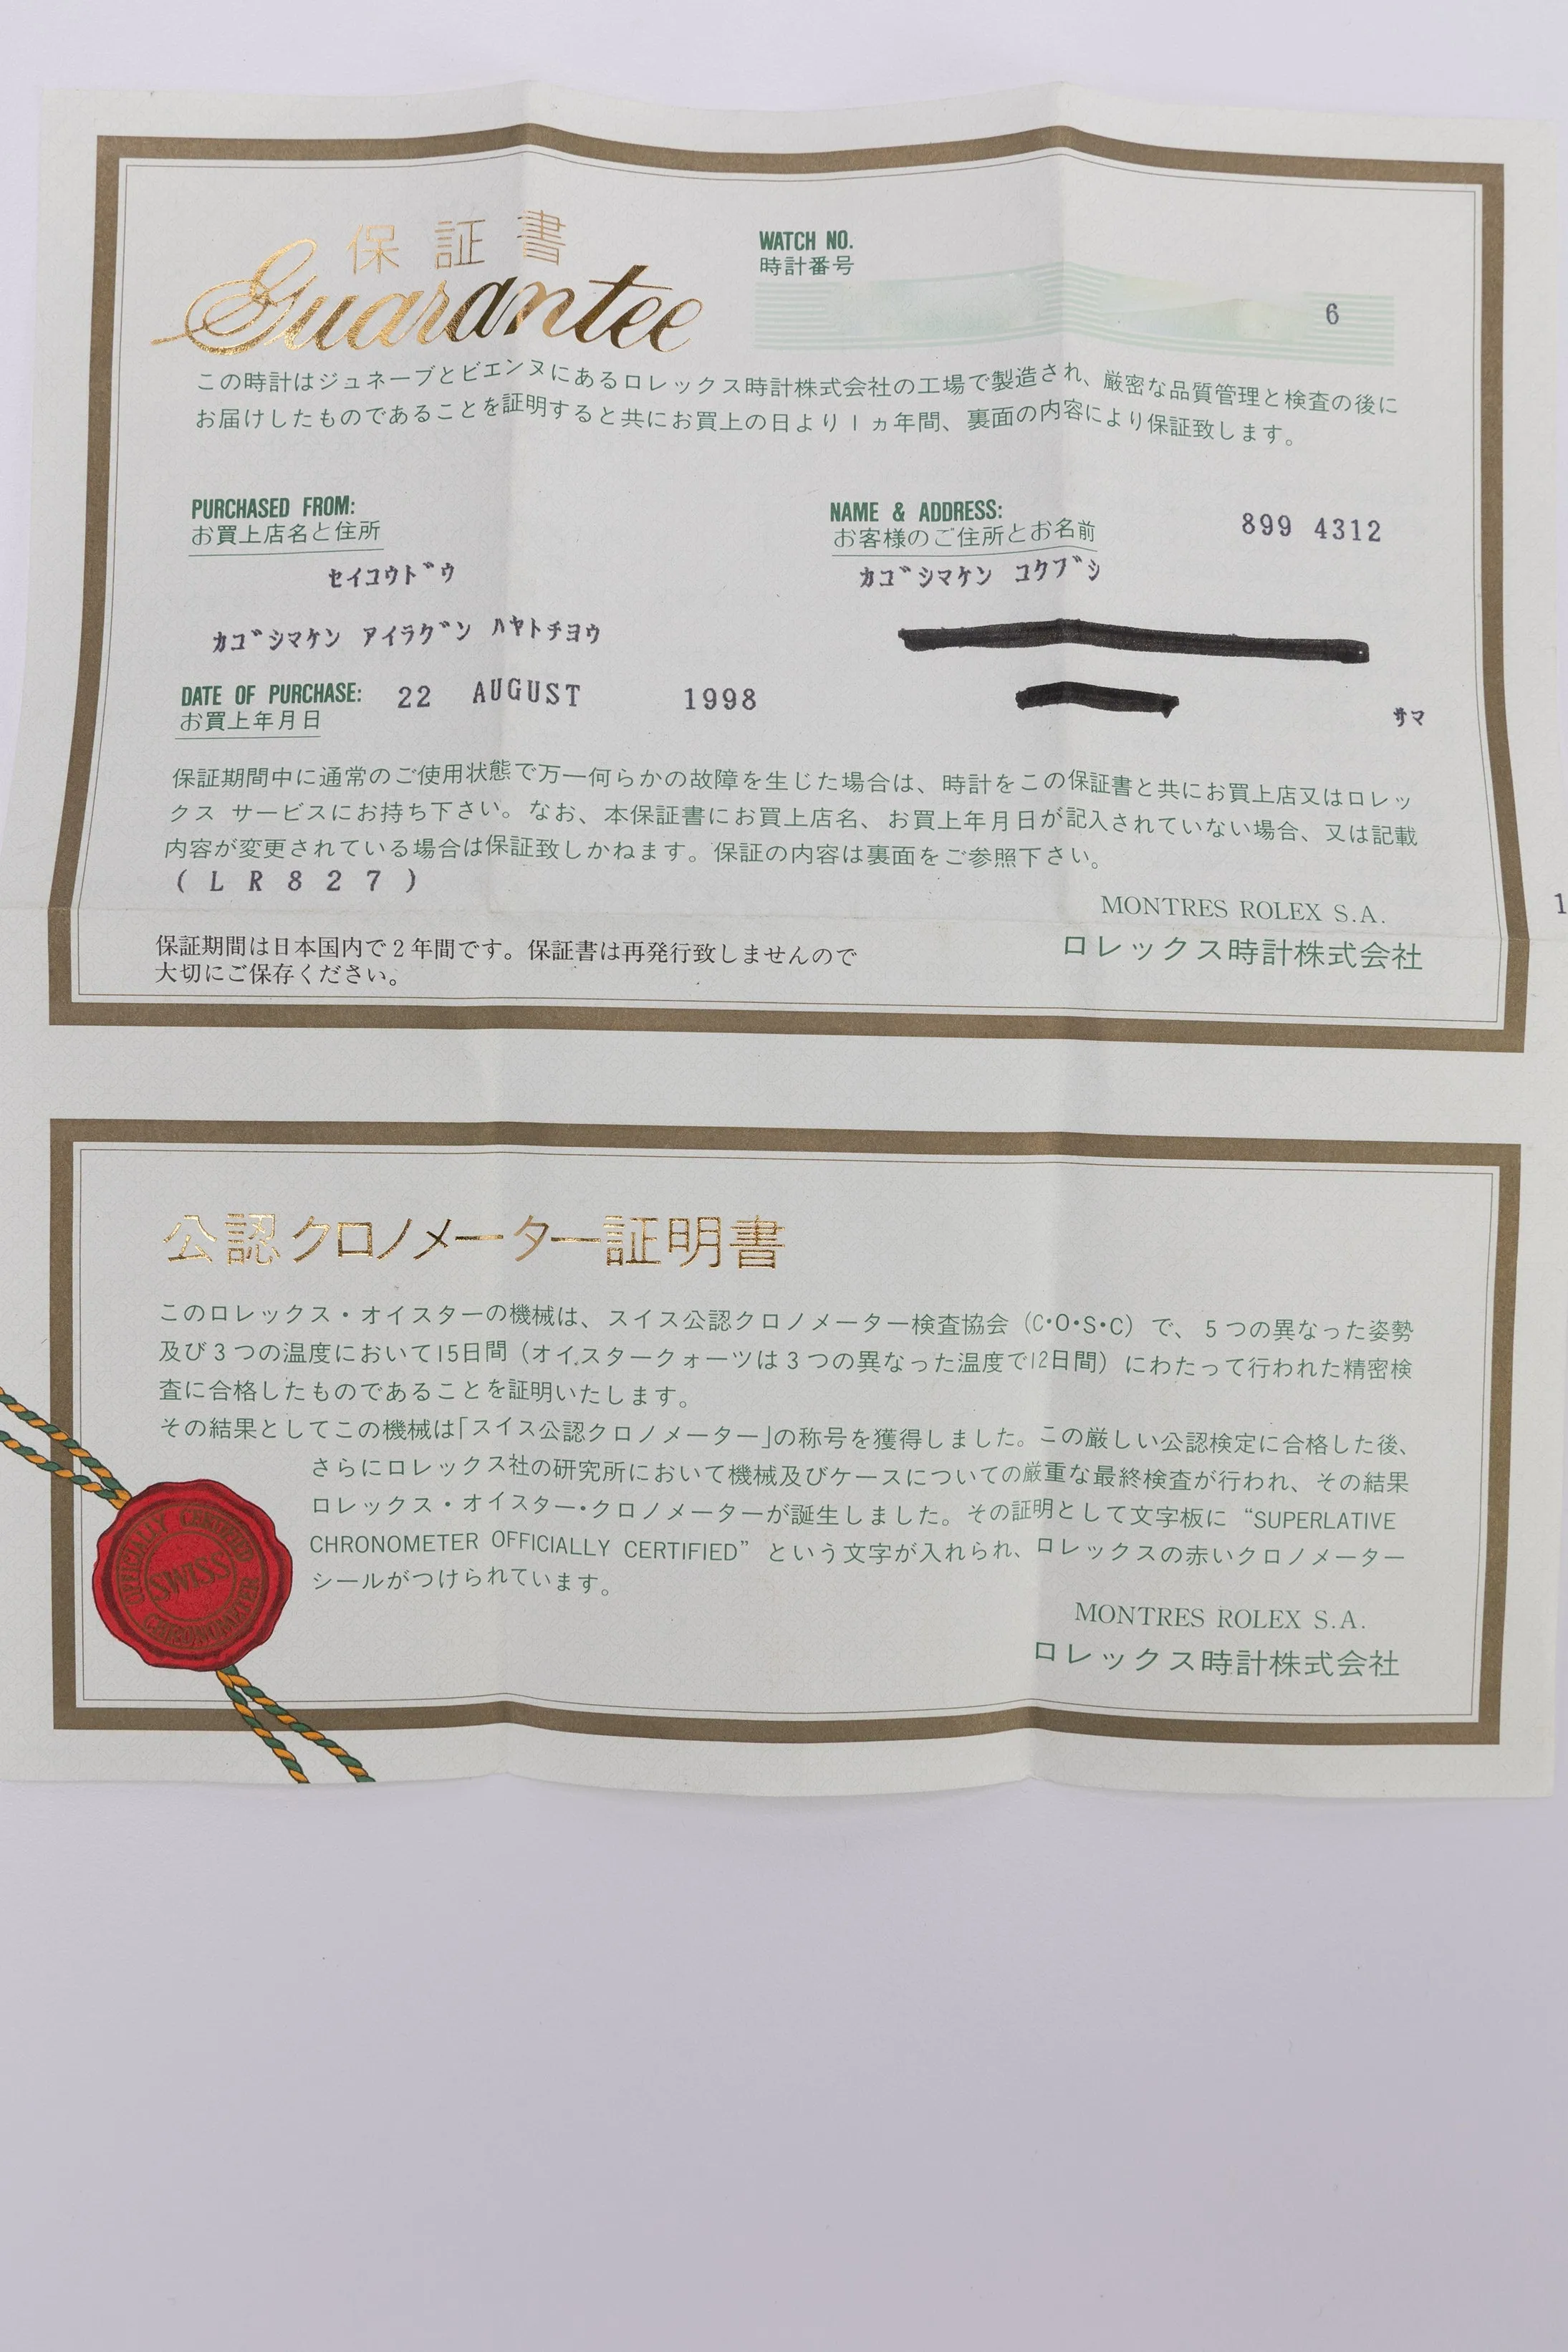 保証書
Guarantee
WATCH NO.
時計番号
6
この時計はジュネーブとビエンヌにあるロレックス時計株式会社の工場で製造され、厳密な品質管理と検査の後に
お届けしたものであることを証明すると共にお買上の日より1ヵ年間、裏面の内容により保証致します。
PURCHASED FROM:
お買上店名と住所
セイコウドウ
カゴシマケン アイラグン ハヤトチヨウ
NAME & ADDRESS:
お客様のご住所とお名前
899 4312
カゴシマケン コクブシ
サマ
DATE OF PURCHASE: 22 AUGUST 1998
お買上年月日
保証期間中に通常のご使用状態で万一何らかの故障を生じた場合は、時計をこの保証書と共にお買上店又はロレッ
クス サービスにお持ち下さい。なお、本保証書にお買上店名、お買上年月日が記入されていない場合、又は記載
内容が変更されている場合は保証致しかねます。保証の内容は裏面をご参照下さい。
(LR827)
1
MONTRES ROLEX S.A.
ロレックス時計株式会社
保証期間は日本国内で2年間です。保証書は再発行致しませんので
大切にご保存ください。
公認クロノメーター証明書
このロレックス・オイスターの機械は、スイス公認クロノメーター検査協会（C・O・S・C）で、5つの異なった姿勢
及び3つの温度において15日間（オイスタークォーツは3つの異なった温度で12日間）にわたって行われた精密検
査に合格したものであることを証明いたします。
その結果としてこの機械は「スイス公認クロノメーター」の称号を獲得しました。この厳しい公認検定に合格した後、
さらにロレックス社の研究所において機械及びケースについての厳重な最終検査が行われ、その結果
ロレックス・オイスター・クロノメーターが誕生しました。その証明として文字板に “SUPERLATIVE
CHRONOMETER OFFICIALLY CERTIFIED” という文字が入れられ、ロレックスの赤いクロノメーター
シールがつけられています。
OFFICIALLY CERTIFIED
SWISS
CHRONOMETER
MONTRES ROLEX S.A.
ロレックス時計株式会社